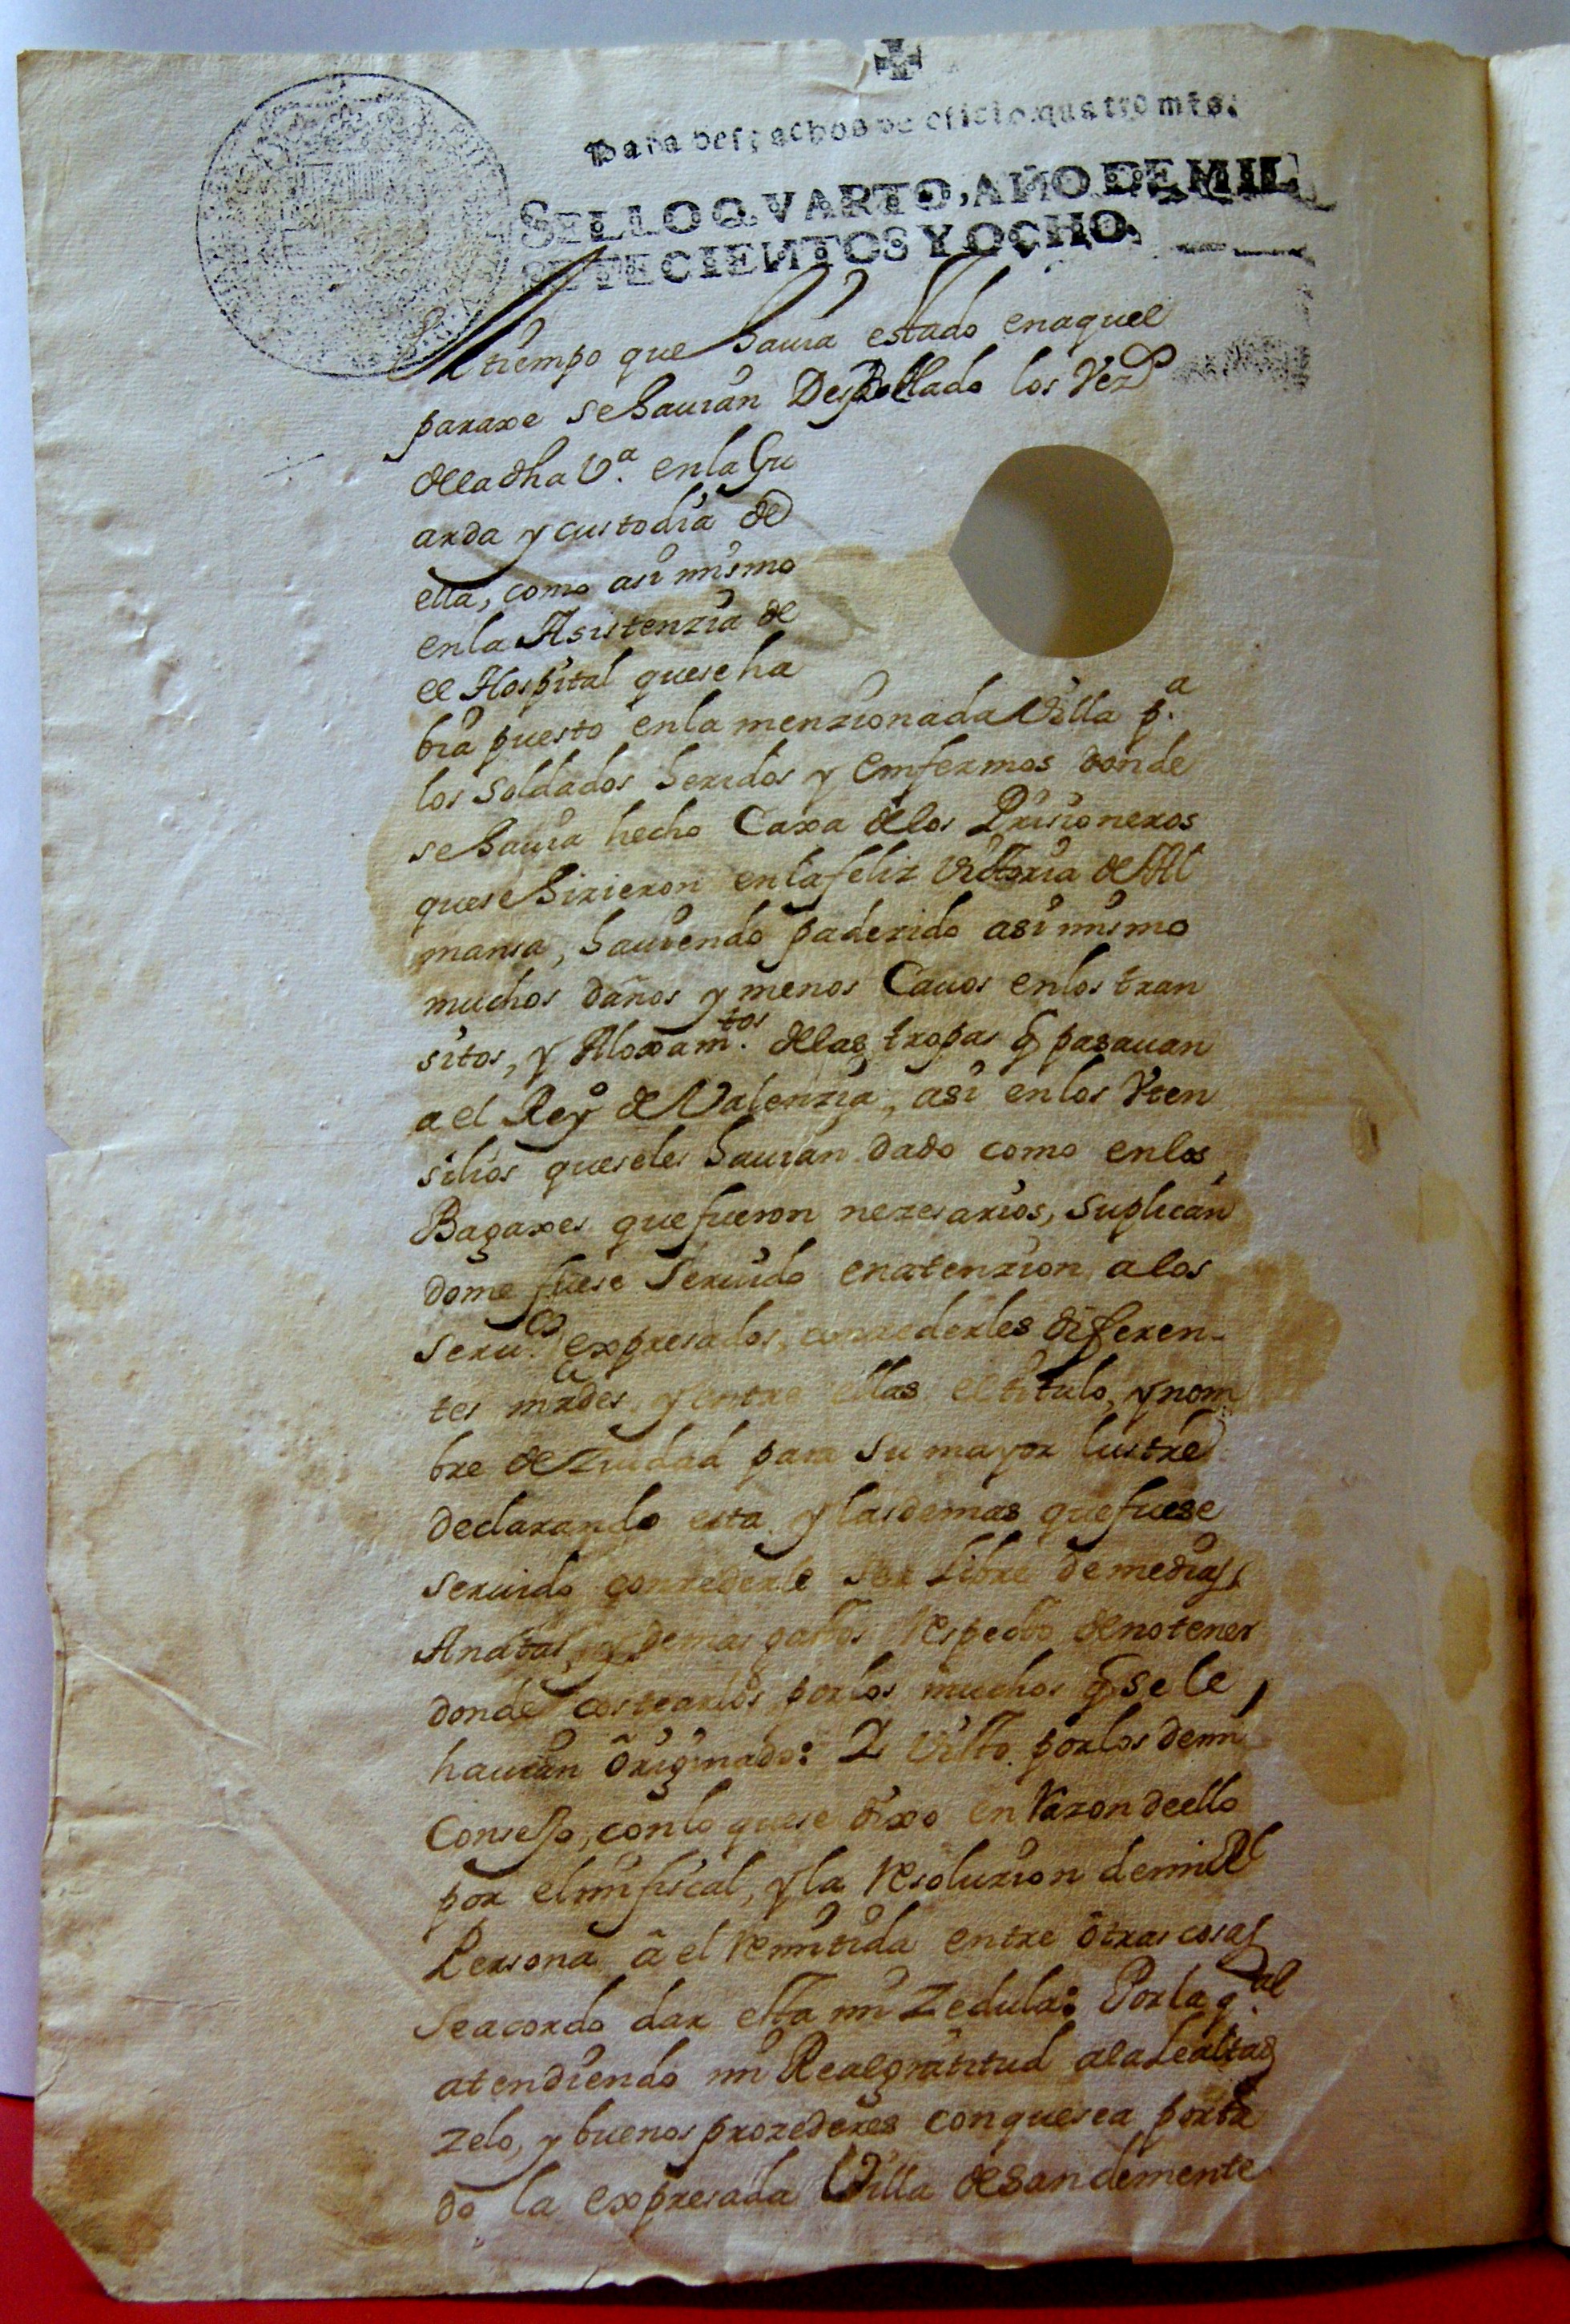 Para despachos de oficio quatro mrs.
SELLO QVARTO, AÑO DE MIL
SETECIENTOS Y OCHO.
El tiempo que hauia estado en aquel
paraxe se hauian Desvellado los Vez.os
de la dha V.a en la Gu
arda y custodia de
ella, como asi mismo
en la Asistenzia de
el Hospital que se ha
bia puesto en la menzionada Villa p.a
los Soldados heridos y emfermos donde
se hauia hecho Caxa de los Prisioneros
que se hizieron en la feliz Victoria de Al
mansa, hauiendo padezido asi mismo
muchos daños y menos Cauos en los tran
sitos, y Aloxam.tos de las tropas q pasauan
a el Rey.o de Valenzia, asi en los Vten
silios que se les hauian dado como en los
Bagaxes que fueron nezesarios, suplican
dome fuese seruido en atenzion a los
seru.os expresados, conzederles diferen-
tes mrzdes, y entre ellas el titulo, y nom
bre de Ziudad para su mayor lustre
declarando esta y las demas que fuese
seruido conzederle ser Libre de medias
Anatas, y demas gastos respecto de no tener
donde costearlos por los muchos q se le
hauian õriginado: Y Visto por los de mi
Consejo, con lo que se dixo en Razon de ello
por el mi fiscal, y la resoluzion de mi Rl
Persona â el remitida entre õtras cosas
se acordo dar esta mi Zedula: Por la q.al
atendiendo mi Real gratitud a la Lealtad
zelo, y buenos prozederes con que se a porta
do la expresada Villa de San Clemente